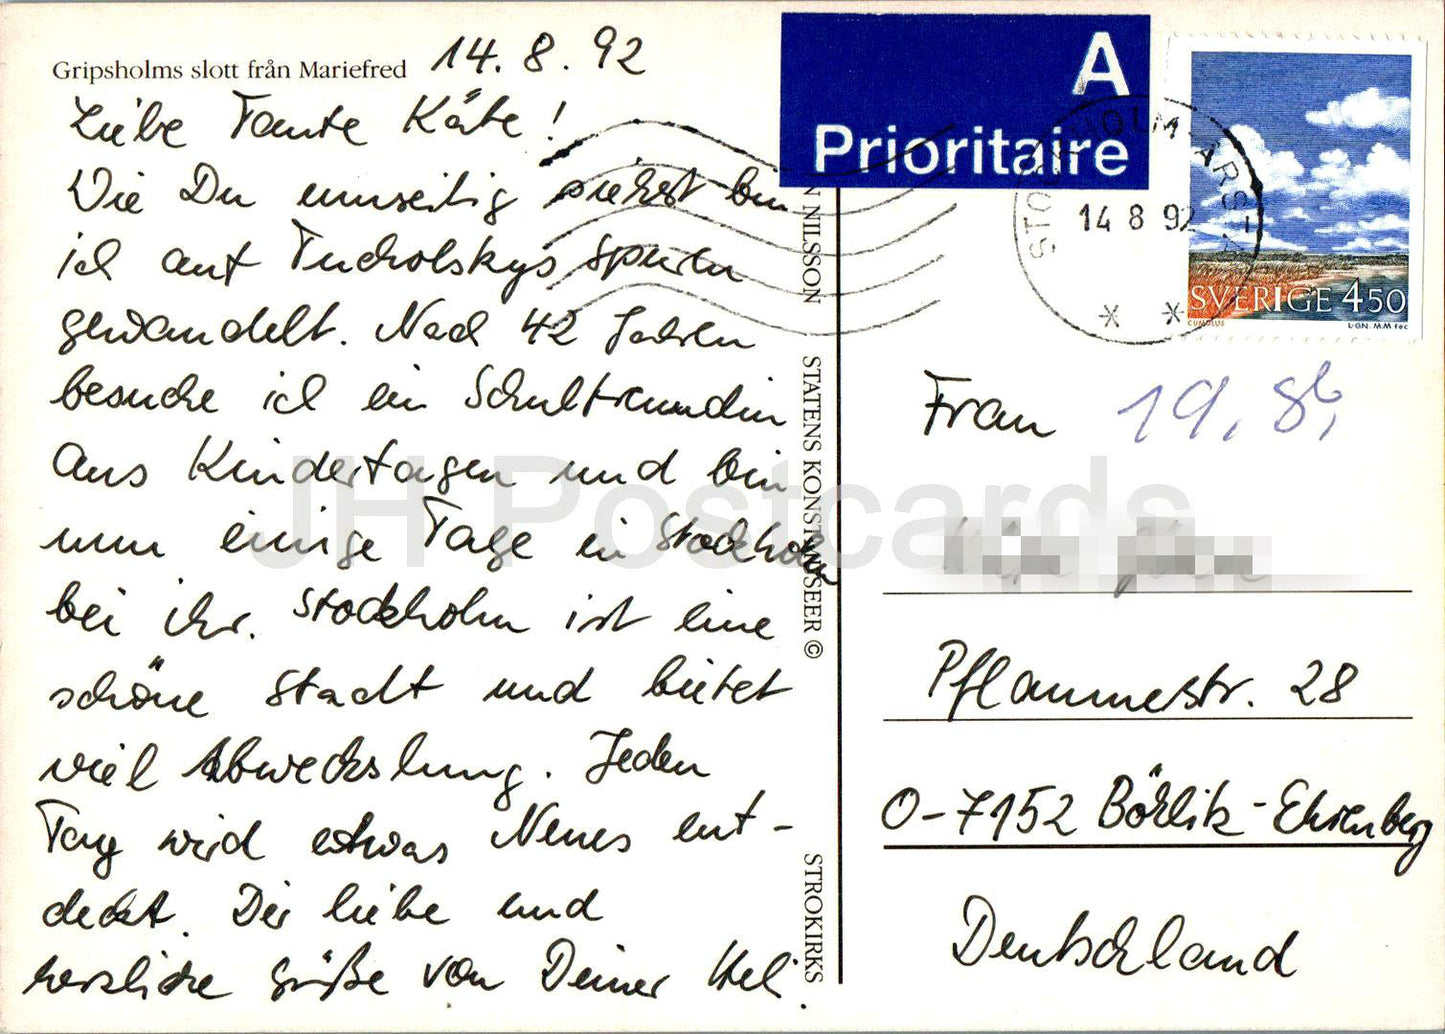 Gripsholms slott från Mariefred
14.8.92
Liebe Tante Käte!
Wie Du umseitig siehst bin
ich auf Tucholskys Spuren
gewandelt. Nach 42 Jahren
besuche ich ein Schulfreundin
aus Kindertagen und bin
nun einige Tage in Stockholm
bei ihr. Stockholm ist eine
schöne Stadt und bietet
viel Abwechslung. Jeden
Tag wird etwas Neues ent-
deckt. Dir liebe und
herzliche Grüße von Deiner
N NILSSON
STATENS KONSTMUSEER ©
STROKIRKS
A
Prioritaire
STOCKHOLM-ÅRSTA
14 8 92
* *
SVERIGE 450
CUMULUS
L-GN. M.M fec
Frau
19, 86,
Pflaumestr. 28
O-7152 Börlitz-Ehrenberg
Deutschland
JH Postcards